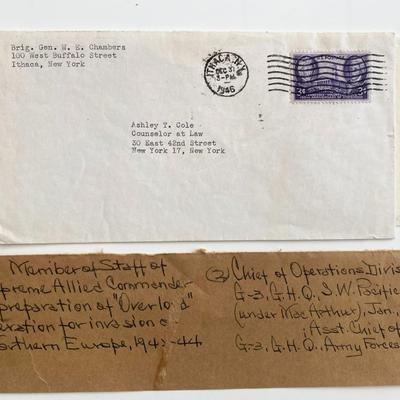 Brig. Gen. W. E. Chambers
100 West Buffalo Street
Ithaca, New York
ITHACA, N.Y.
DEC 31
3-PM
1946
3¢
3¢
Ashley T. Cole
Counselor at Law
30 East 42nd Street
New York 17, New York
Member of Staff of
preme Allied Commander
preparation of "Overlord"
eration for invasion o
rthern Europe, 1943-44
② Chief of Operations Divis
G-3, G.H.Q., S.W. Pacific
(under MacArthur), Jan,
Asst. Chief of
G-3, G.H.Q., Army Forces